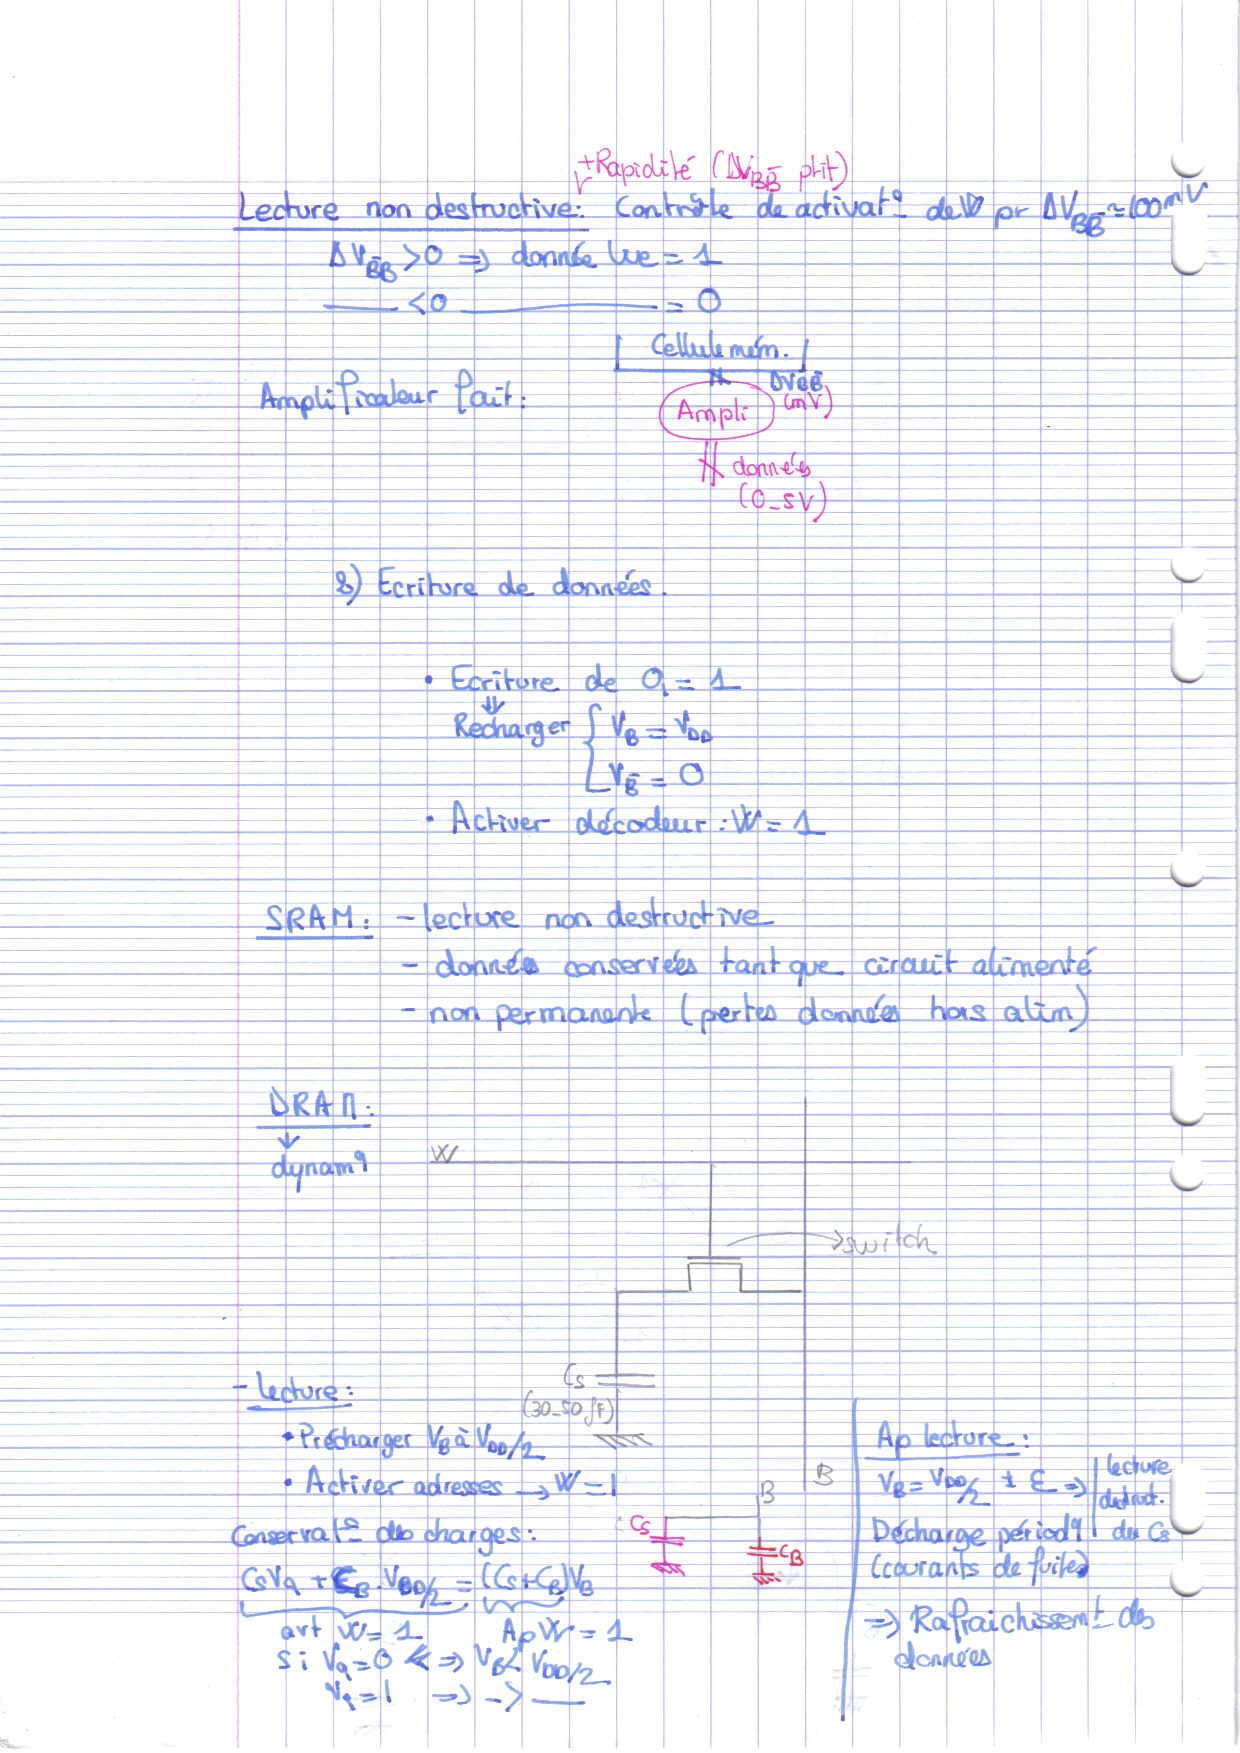 +Rapidité (ΔV_BB̄ ptit)
Lecture non destructive: Contrôle de activat° de W pr ΔV_BB̄ ≃ 100mV
ΔV_B̄B > 0 => donnée lue = 1
—— <0 ———— = 0
Cellule mém.
ΔV_BB̄
Amplificateur fait:
Ampli (mV)
données
(0_5V)
2) Ecriture de données.
• Ecriture de Q = 1
⇓
Recharger { V_B = V_DD
V_B̄ = 0
• Activer décodeur : W = 1
SRAM: - lecture non destructive
- données conservées tant que circuit alimenté
- non permanente (pertes données hors alim)
DRAM:
↓
dynamq
W
switch
Cs
(30_50 fF)
- Lecture:
• Précharger V_B à V_DD/2
• Activer adresses → W = 1
B
B
Conservat° des charges:
Cs
C_B
CsVq + C_B . V_DD/2 = (Cs+C_B)V_B
avt W = 1 Ap W = 1
Si Vq = 0 => V_B < V_DD/2
Vq = 1 => - > ——
Ap lecture:
V_B = V_DD/2 ± ε => lecture
destruct.
Décharge périodq du Cs
(courants de fuites)
=> Rafraichissemt des
données